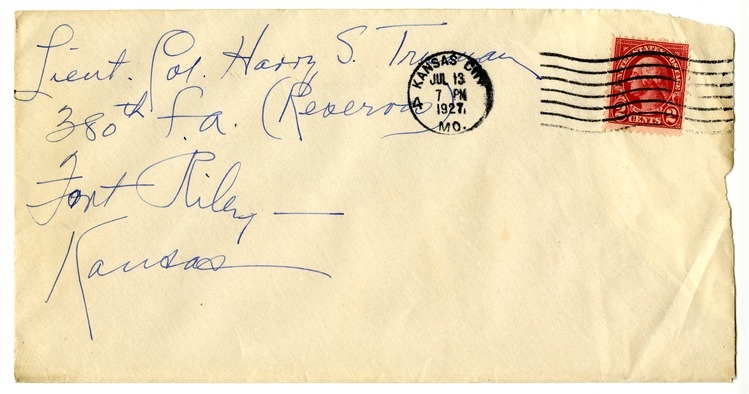 Lieut. Col. Harry S. Truman
380th F.A. (Reserves)
Fort Riley —
Kansas
KANSAS CITY
4
JUL 13
7 PM
1927
MO.
UNITED STATES POSTAGE
2 CENTS 2